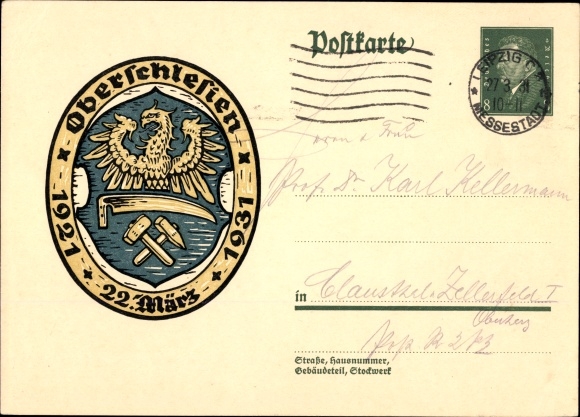 Oberschlesien
1921 1931
22. März
Postkarte
Deutsches Reich
8
LEIPZIG C
27.3.31
10-11
MESSESTADT
Herrn u Frau
Prof. Dr. Karl Kellermann
in Clausthal-Zellerfeld I
Oberharz
Straße, Hausnummer,
Gebäudeteil, Stockwerk